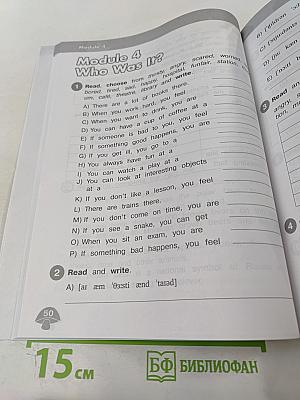 Module 4
Module 4
Who Was It?
1 Read, choose from thirsty, angry, scared, worried,
bored, tired, sad, happy, hospital, funfair, station,
café, theatre, library and write.
A) There are a lot of books there
B) When you work hard, you feel
C) When you want to drink, you are
D) You can have a cup of coffee at a
E) If someone is bad to you, you feel
F) If something good happens, you are
G) If you get ill, you go to a
H) You always have fun at a
I) You can watch a play at a
J) You can look at interesting objects
at a
K) If you don't like a lesson, you feel
L) There are trains there.
M) If you don't come on time, you are
N) If you see a snake, you can get
O) When you sit an exam, you are
P) If something bad happens, you feel
2 Read and write.
A) [aɪ æm ˈθɜːsti ænd ˈtaɪəd]
50
3 Read an
4
15 см
БФ БИБЛИОФАН